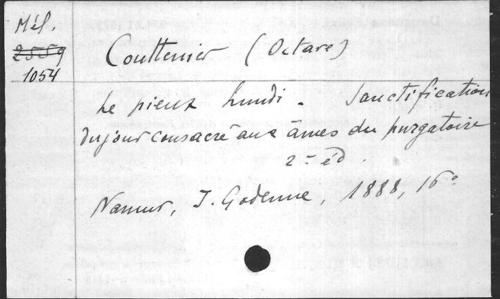 Mél.
25559
1054
Couttenier (Octave)
Le pieux lundi. Sanctification
du jour consacré aux âmes du purgatoire
2e éd.
Namur, J. Godenne, 1888, 16o